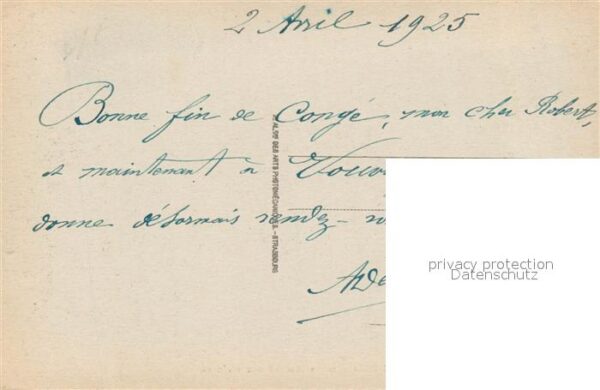 2 Avril 1925
Bonne fin de Congé, mon cher Robert,
et maintenant à
donne désormais rendez-
RÉAL. DES ARTS PHOTOMÉCANIQUES. - STRASBOURG
privacy protection
Datenschutz